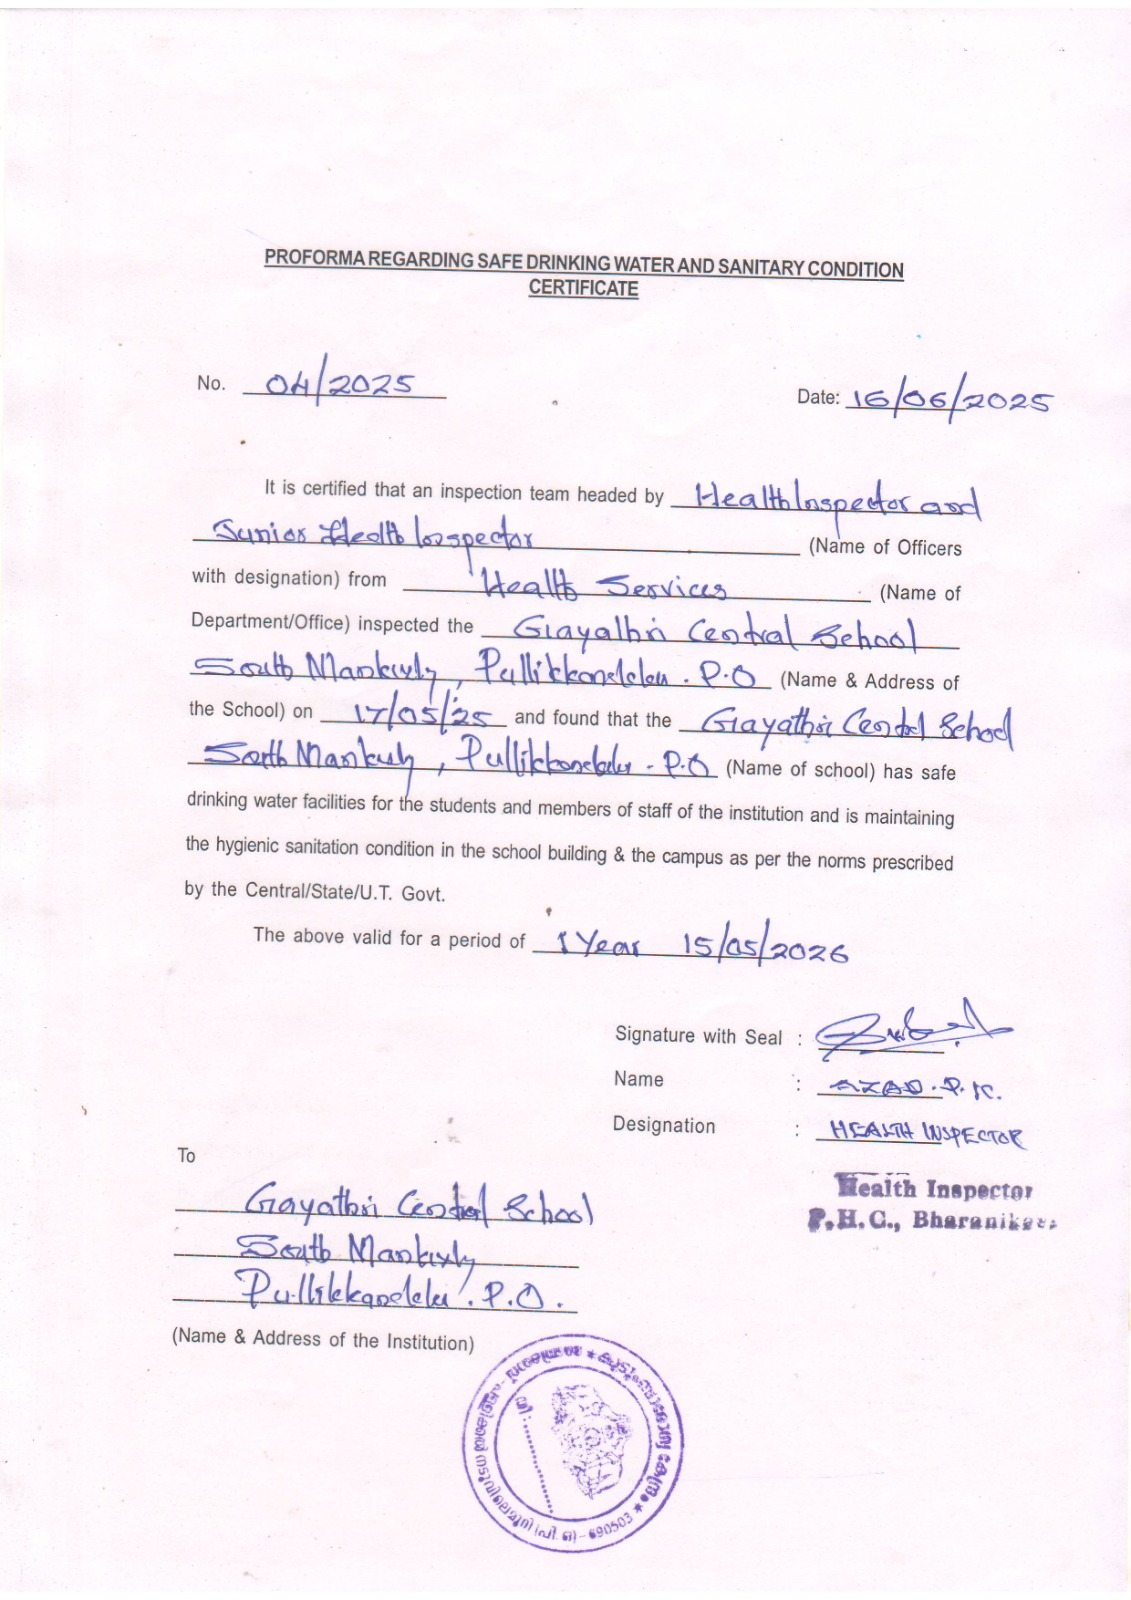 PROFORMA REGARDING SAFE DRINKING WATER AND SANITARY CONDITION
CERTIFICATE
No. 04/2025
Date: 16/06/2025
It is certified that an inspection team headed by Health Inspector and
Junior Health Inspector (Name of Officers
with designation) from Health Services (Name of
Department/Office) inspected the Gayathri Central School
South Mankuzhy, Pullikkanakku. P.O (Name & Address of
the School) on 17/05/25 and found that the Gayathri Central School
South Mankuzhy, Pullikkanakku - P.O (Name of school) has safe
drinking water facilities for the students and members of staff of the institution and is maintaining
the hygienic sanitation condition in the school building & the campus as per the norms prescribed
by the Central/State/U.T. Govt.
The above valid for a period of 1 Year 15/05/2026
Signature with Seal :
Name : AZAD. P. K.
Designation : HEALTH INSPECTOR
Health Inspector
P.H.C., Bharanikavu
To
Gayathri Central School
South Mankuzhy
Pullikkanakku. P.O.
(Name & Address of the Institution)
കുടുംബാരോഗ്യ കേന്ദ്രം
(പി. ഒ) - 690503